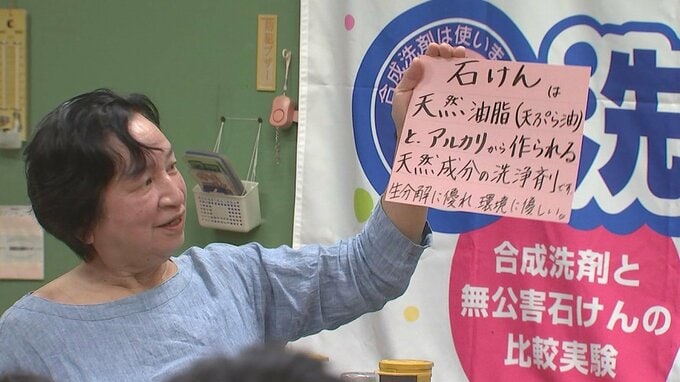 石けんは
天然油脂(天ぷら油)
と、アルカリから作られる
天然成分の洗浄剤です
生分解に優れ 環境に優しい。
合成洗剤は使いま
洗
合成洗剤と
無公害石けんの
比較実験